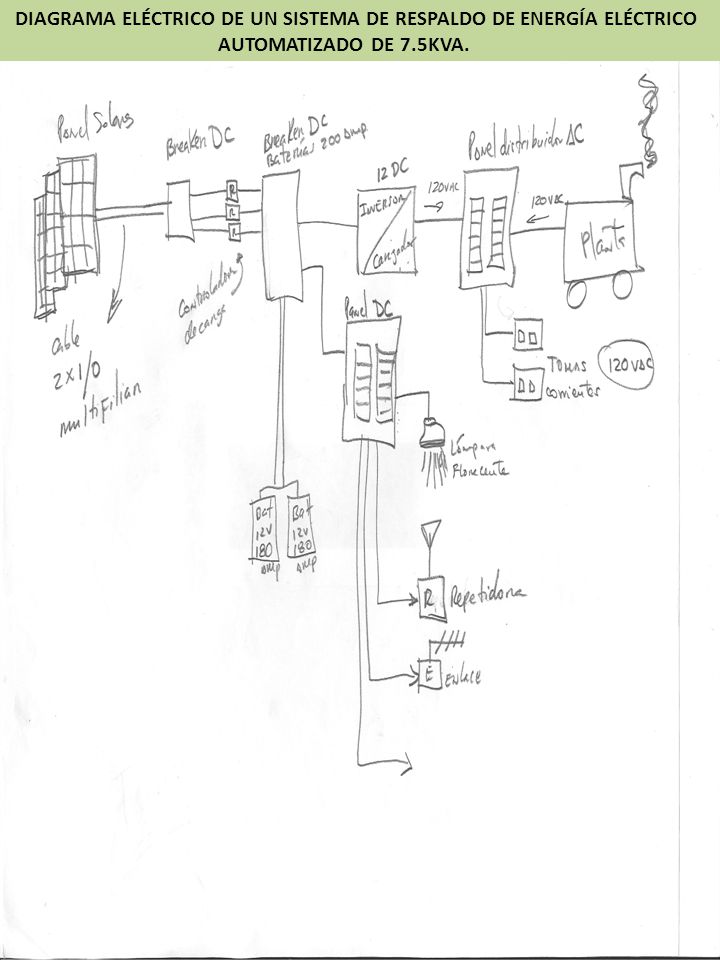 DIAGRAMA ELÉCTRICO DE UN SISTEMA DE RESPALDO DE ENERGÍA ELÉCTRICO
AUTOMATIZADO DE 7.5KVA.
Panel Solares
Breaker DC
Breaker DC
Baterías 200 Amp
12 DC
Panel distribuidor AC
INVERSOR
Cargador
120VAC
120VAC
Planta
R
R
R
Controlador
de carga
Cable
2X1/0
multifiliar
Panel DC
Tomas
corrientes
120VAC
Lámpara
Florecente
Bat
12V
180
AMP
Bat
12V
180
AMP
R
Repetidora
E
Enlace